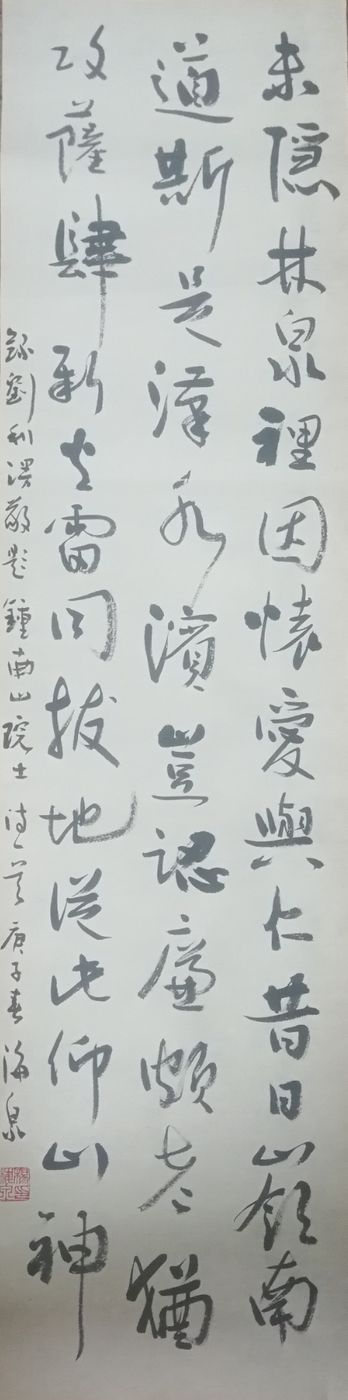 未隱林泉裡因懷愛與仁昔日山嶺南
道斯是漢水濱豈認廉頗老猶
攻薩肆新火雷同拔地從此仰山神
錄劉利敬題鍾南山院士詩一首庚子春海泉